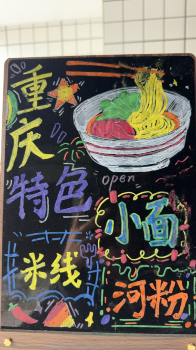 重庆
特色
open
小面
米线
河粉